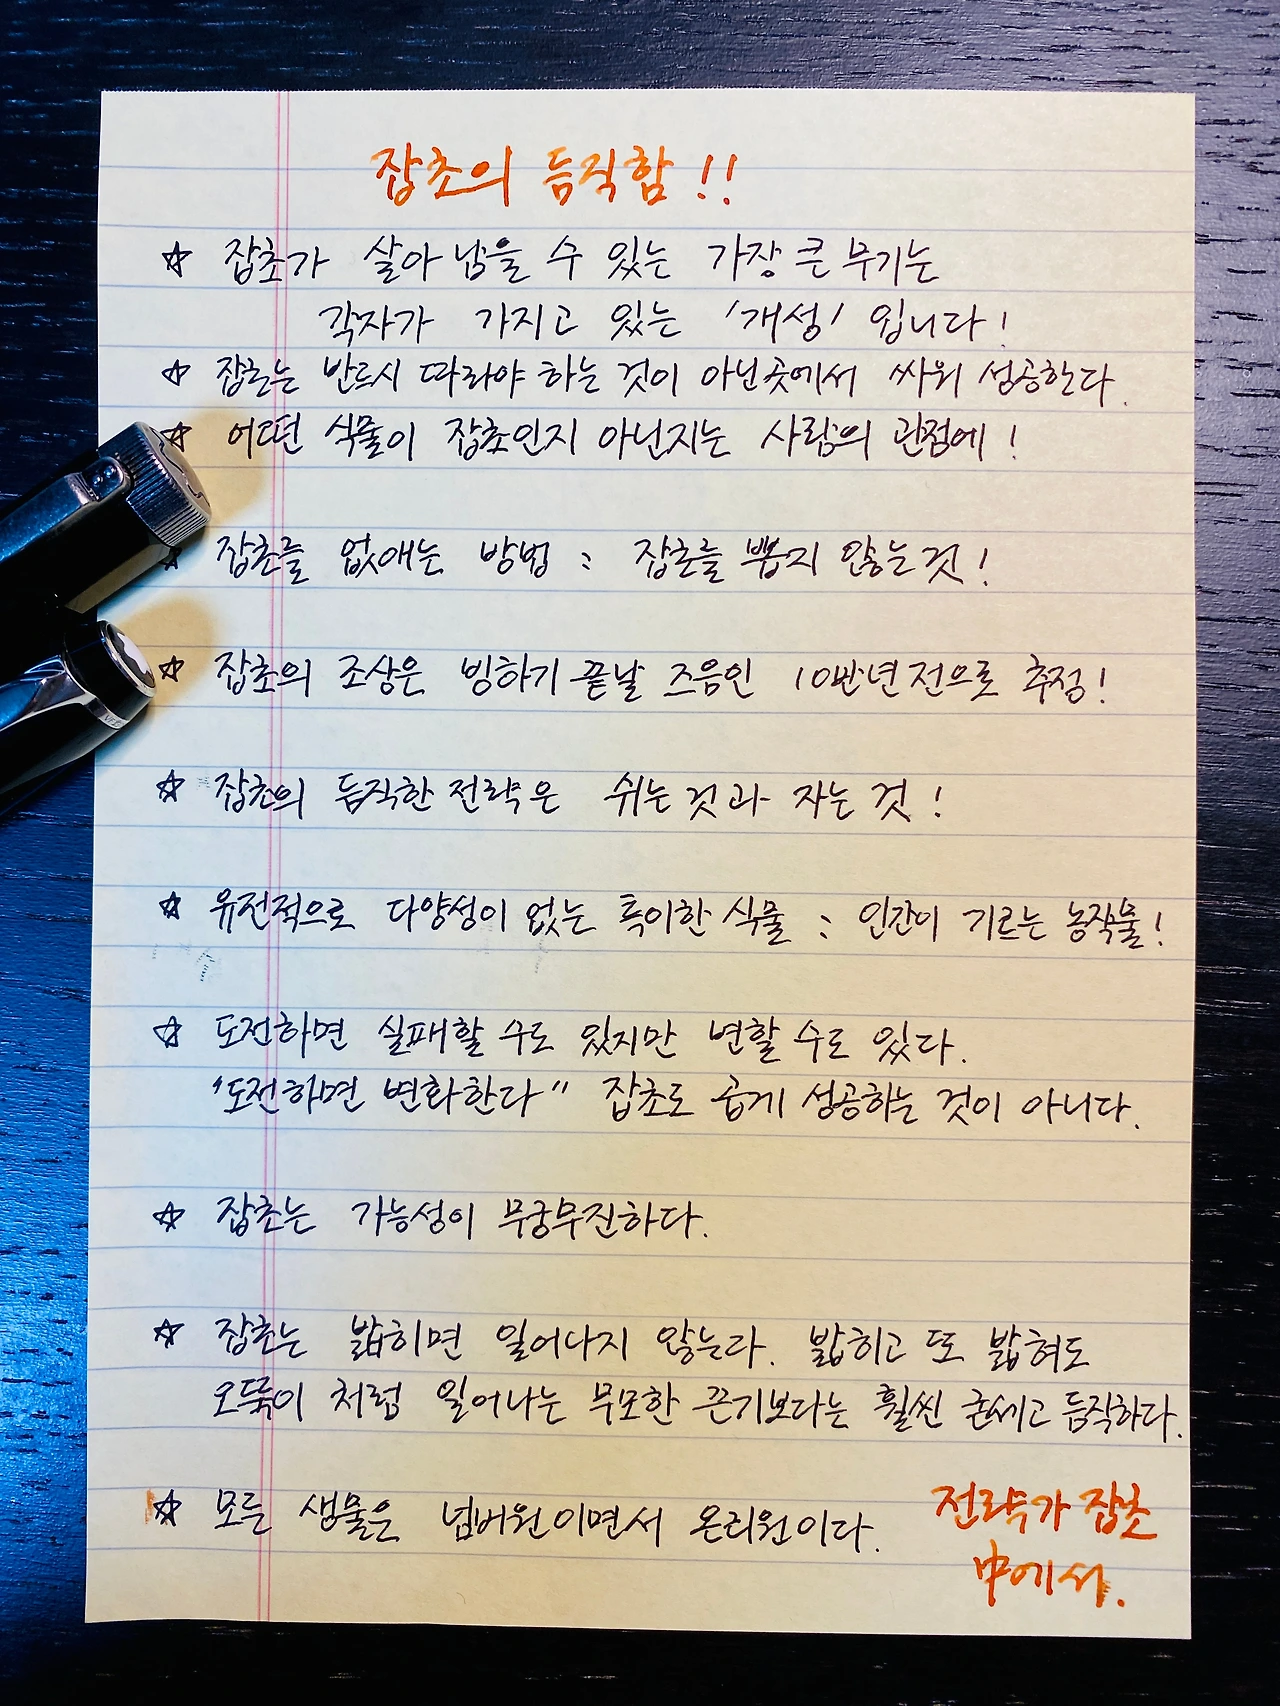 잡초의 듬직함!!
☆ 잡초가 살아 남을 수 있는 가장 큰 무기는
각자가 가지고 있는 '개성' 입니다!
☆ 잡초는 반드시 따라야 하는 것이 아닌곳에서 싸워 성공한다.
☆ 어떤 식물이 잡초인지 아닌지는 사람의 관점에!
☆ 잡초를 없애는 방법 : 잡초를 뽑지 않는 것!
☆ 잡초의 조상은 빙하기 끝날 즈음인 10만년 전으로 추정!
☆ 잡초의 듬직한 전략은 쉬는 것과 자는 것!
☆ 유전적으로 다양성이 없는 특이한 식물 : 인간이 기르는 농작물!
☆ 도전하면 실패할 수도 있지만 변할 수도 있다.
"도전하면 변화한다" 잡초도 곱게 성공하는 것이 아니다.
☆ 잡초는 가능성이 무궁무진하다.
☆ 잡초는 밟히면 일어나지 않는다. 밟히고 또 밟혀도
오뚝이 처럼 일어나는 무모한 끈기보다는 훨씬 굳세고 듬직하다.
☆ 모든 생물은 넘버원이면서 온리원이다.
전략가 잡초
中에서.